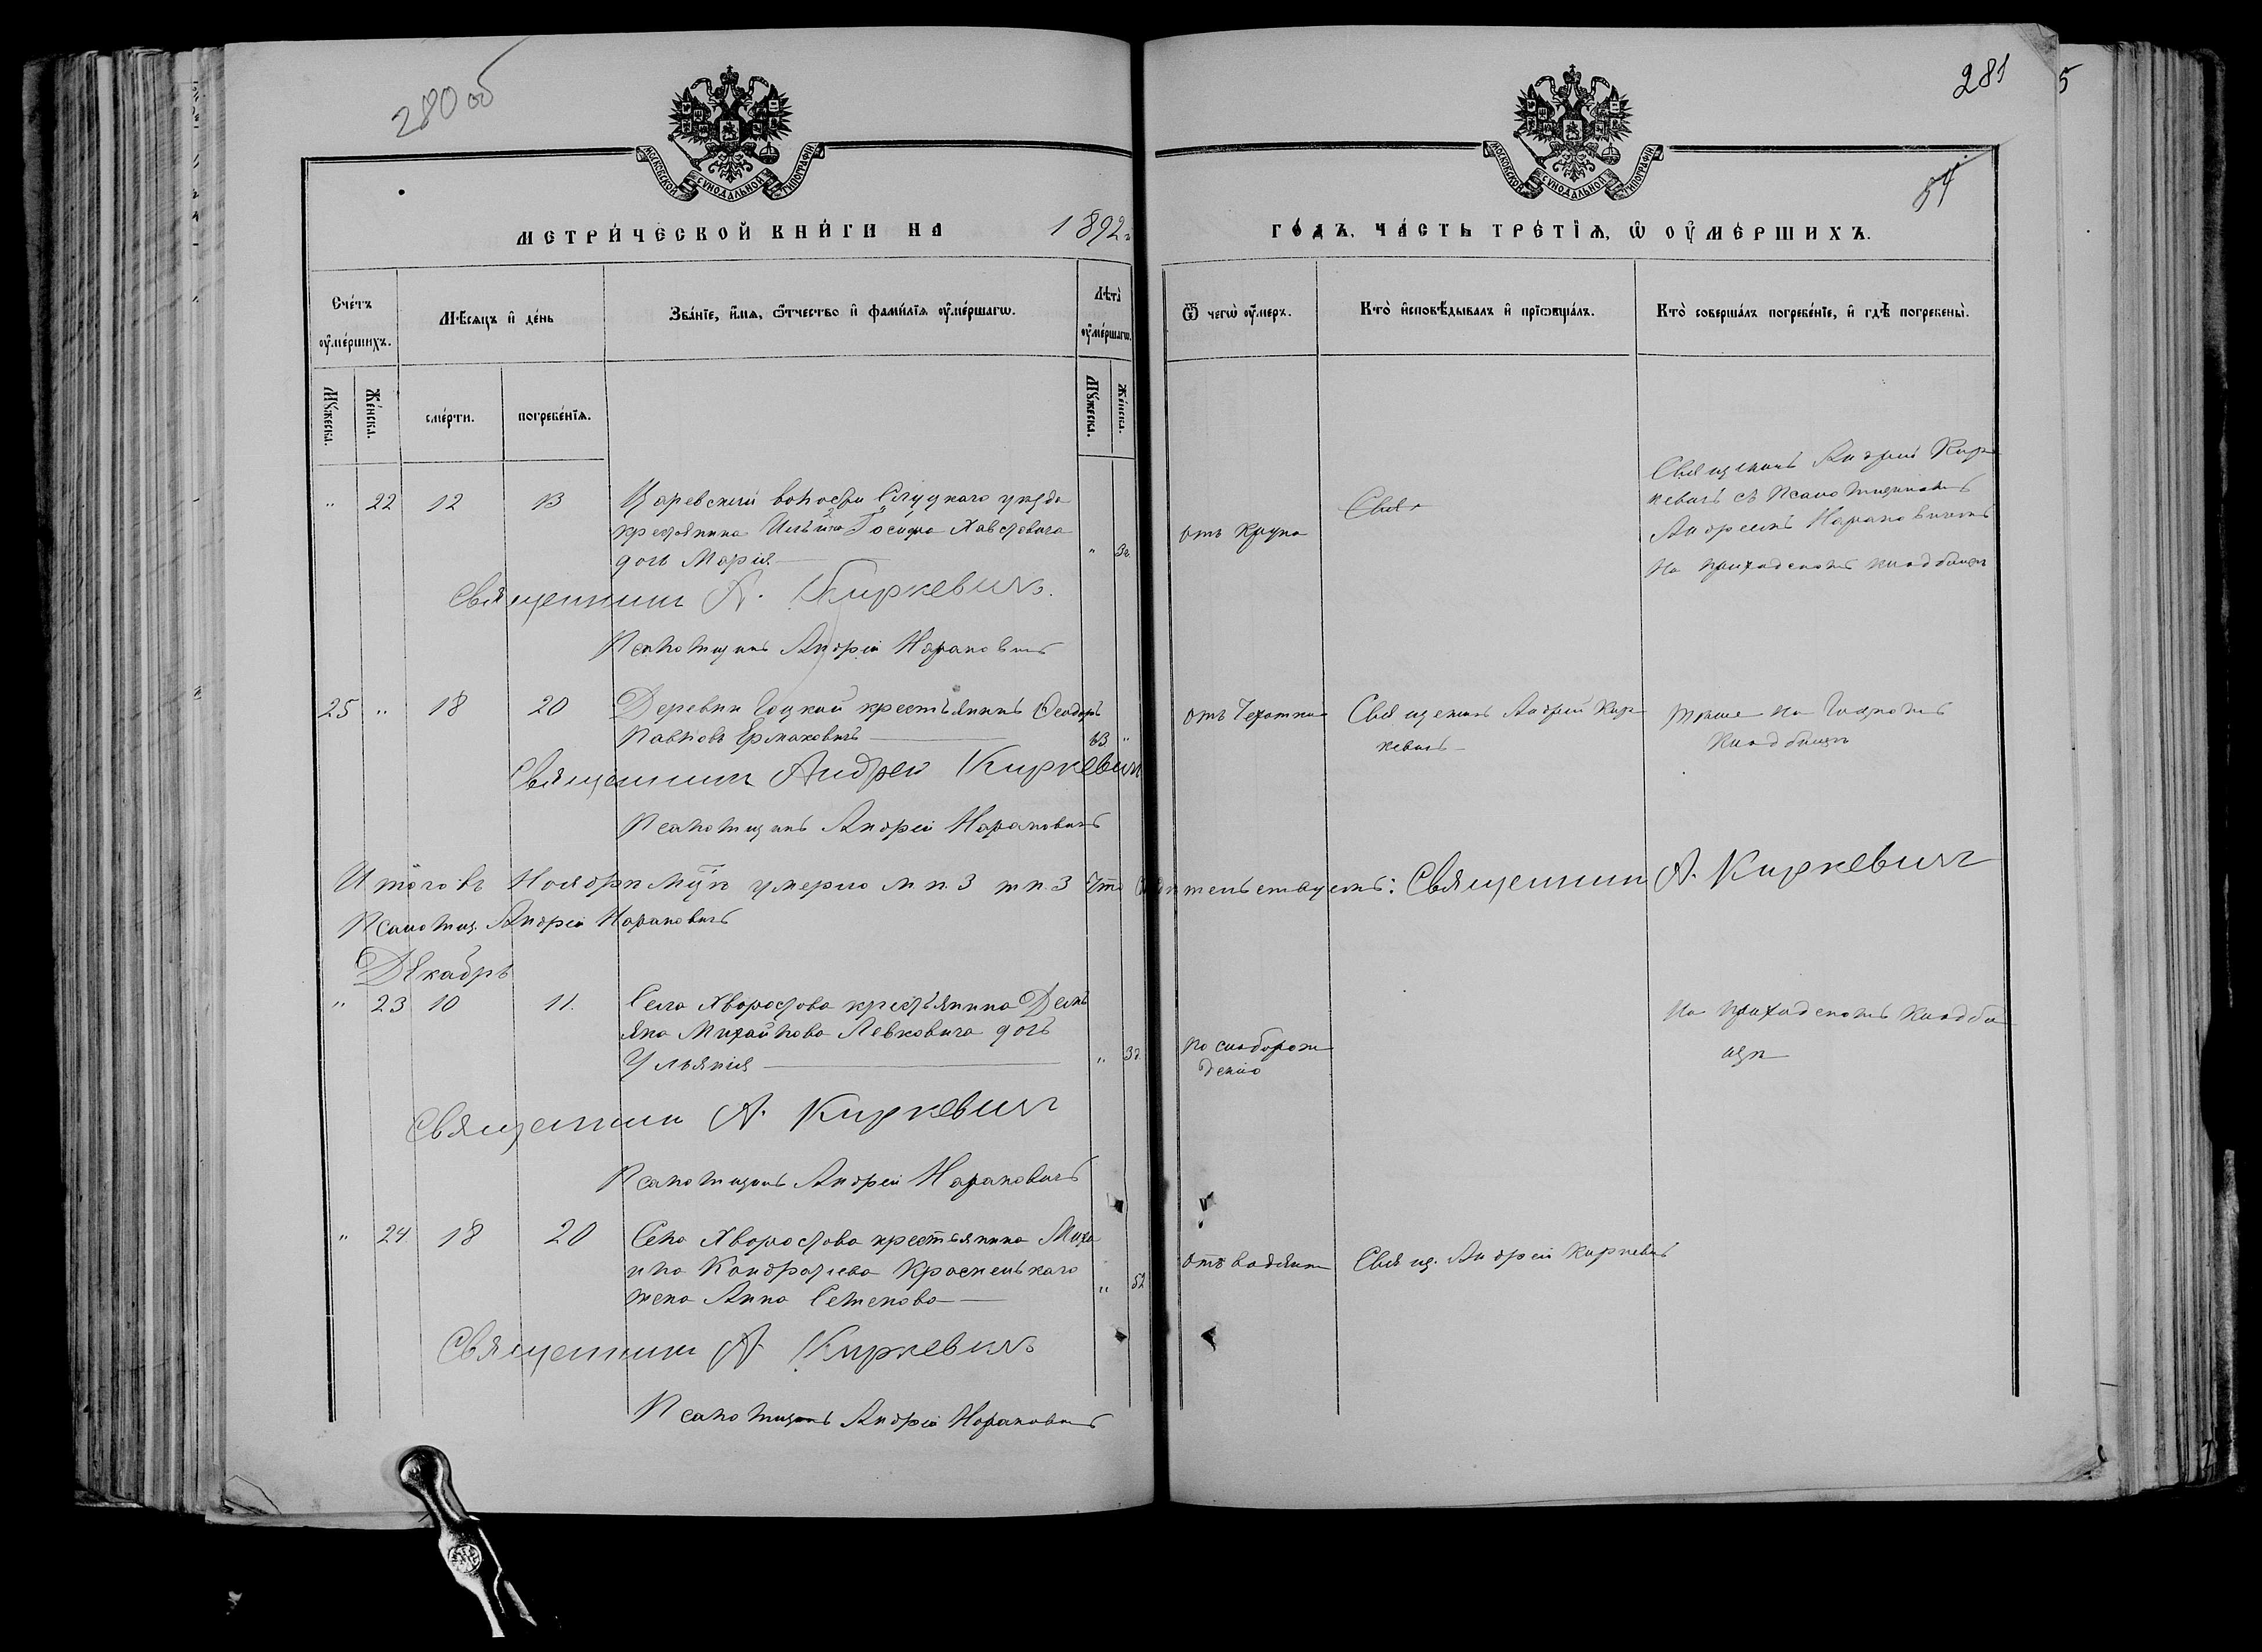 280 об
281
5
МОСКОВСКОЙ СѴНОДАЛЬНОЙ ТИПОГРАФІИ
МОСКОВСКОЙ СѴНОДАЛЬНОЙ ТИПОГРАФІИ
54
МЕТРИ́ЧЕСКОЙ КНИ́ГИ НА 1892 г
ГО́ДЪ, ЧА́СТЬ ТРЕ́ТІѦ, Ѡ ОУ҆МЕ́РШИХЪ.
Сче́тъ оу҆ме́ршихъ.
Мѣ́сяцъ и҆ де́нь
Зва́нїе, и҆́мѧ, ѻ҆́тчество и҆ фами́лїѧ оу҆ме́ршагѡ.
Лѣта̀ оу҆ме́ршагѡ.
Ѿ чегѡ̀ оу҆́меръ.
Кто̀ и҆сповѣ́дывалъ и҆ прїѡбща́лъ.
Кто̀ соверша́лъ погребе́нїе, и҆ гдѣ̀ погребены̀.
Мꙋ́жеска.
Же́нска.
сме́рти.
погребе́нїѧ.
Мꙋ́жеска.
Же́нска.
" 22 12 13
Царевской волости Слуцкаго уезда
крестьянина Іосифа Павловича
дочь Марія
" 3г.
отъ Крупа
Священникъ Андрей Кир-
кевичъ съ Псаломщикомъ
Андреемъ Нарановичемъ
На приходскомъ кладбищѣ
Священникъ А. Киркевичъ.
Псаломщикъ Андрей Нарановичъ
25 " 18 20
Деревни крестьянинъ Ѳеодоръ
Павловъ Ермаковичъ
63 "
отъ Чахотки
Священникъ Андрей Кир-
кевичъ
тоже на
Кладбищѣ
Священникъ Андрей Киркевич
Псаломщикъ Андрей Нарановичъ
Итого въ Ноябрѣ м̃цѣ умерло м. п. 3 ж. п. 3 Что свидѣтельствуемъ: Священник А. Киркевич
Псаломщ. Андрей Нарановичъ
Декабрь
" 23 10 11.
Села Хворостова крестьянина Демь-
яна Михайлова Левковича дочь
Ульянія
" 3д.
по слаборож-
денію
На приходскомъ кладби-
щѣ
Священник А. Киркевич
Псаломщикъ Андрей Нарановичъ
" 24 18 20
Села Хворостова крестьянина Миха-
ила Кондратьева Красненькаго
жена Анна Семенова
" 52
отъ водянки
Свящ. Андрей Киркевичъ
Священник А. Киркевичъ
Псаломщикъ Андрей Нарановичъ